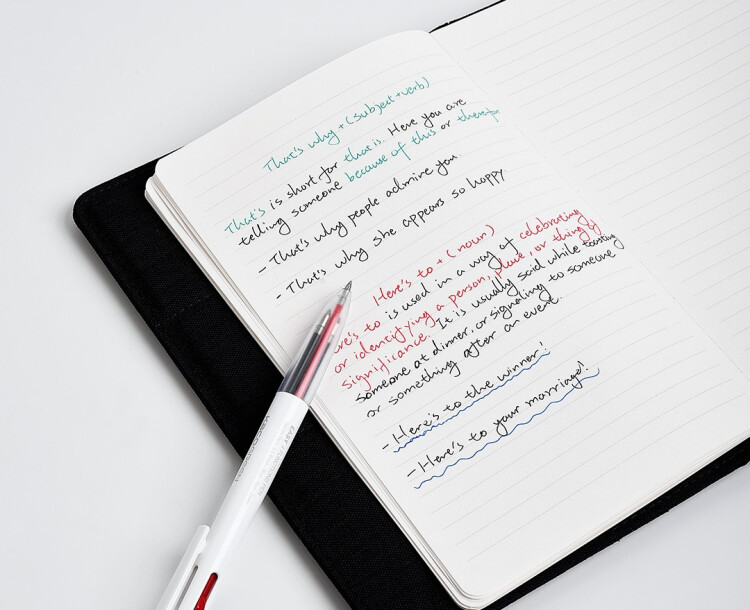 That's why + (subject + verb)
That's is short for that is. Here you are
telling someone because of this or therefor
- That's why people admire you.
- That's why she appears so happy.
Here's to + (noun)
re's to is used in a way of celebrating
or identifying a person, place, or thing of
significance. It is usually said while toasting
someone at dinner, or signaling to someone
or something after an event.
- Here's to the winner!
- Here's to your marriage!